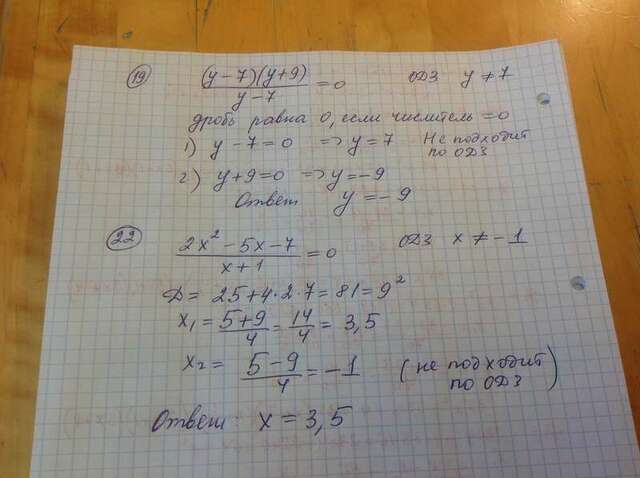 19 (y-7)(y+9)/y-7 = 0 ОДЗ y ≠ 7
дробь равна 0, если числитель = 0
1) y - 7 = 0 => y = 7 Не подходит по ОДЗ
2) y + 9 = 0 => y = -9
Ответ y = -9
22 2x² - 5x - 7/x + 1 = 0 ОДЗ x ≠ -1
D = 25 + 4·2·7 = 81 = 9²
x₁ = 5+9/4 = 14/4 = 3,5
x₂ = 5-9/4 = -1 (не подходит по ОДЗ)
Ответ: x = 3,5